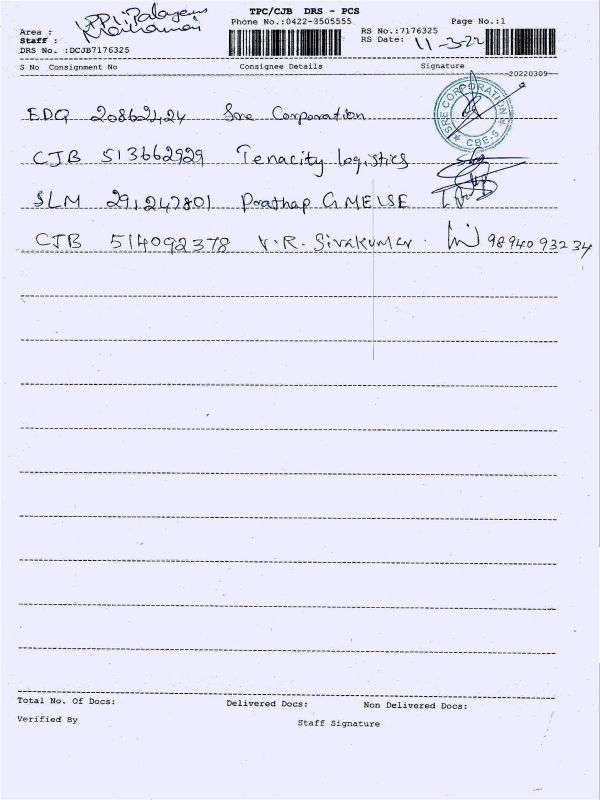 TPC/CJB DRS - PCS
Phone No.:0422-3505555
Page No.:1
Area :
Staff :
DRS No. :DCJB7176325
RS No.:7176325
RS Date: 11-3-22
S No Consignment No Consignee Details Signature
20220309
EDQ 208624424 Sre Corporation
SRE CORPORATION CBE-5
CJB 513662929 Tenacity logistics
SLM 291247801 Prathap
CJB 514092378 V.R. Sivakumar. 9894093234
Total No. Of Docs: Delivered Docs: Non Delivered Docs:
Verified By Staff Signature